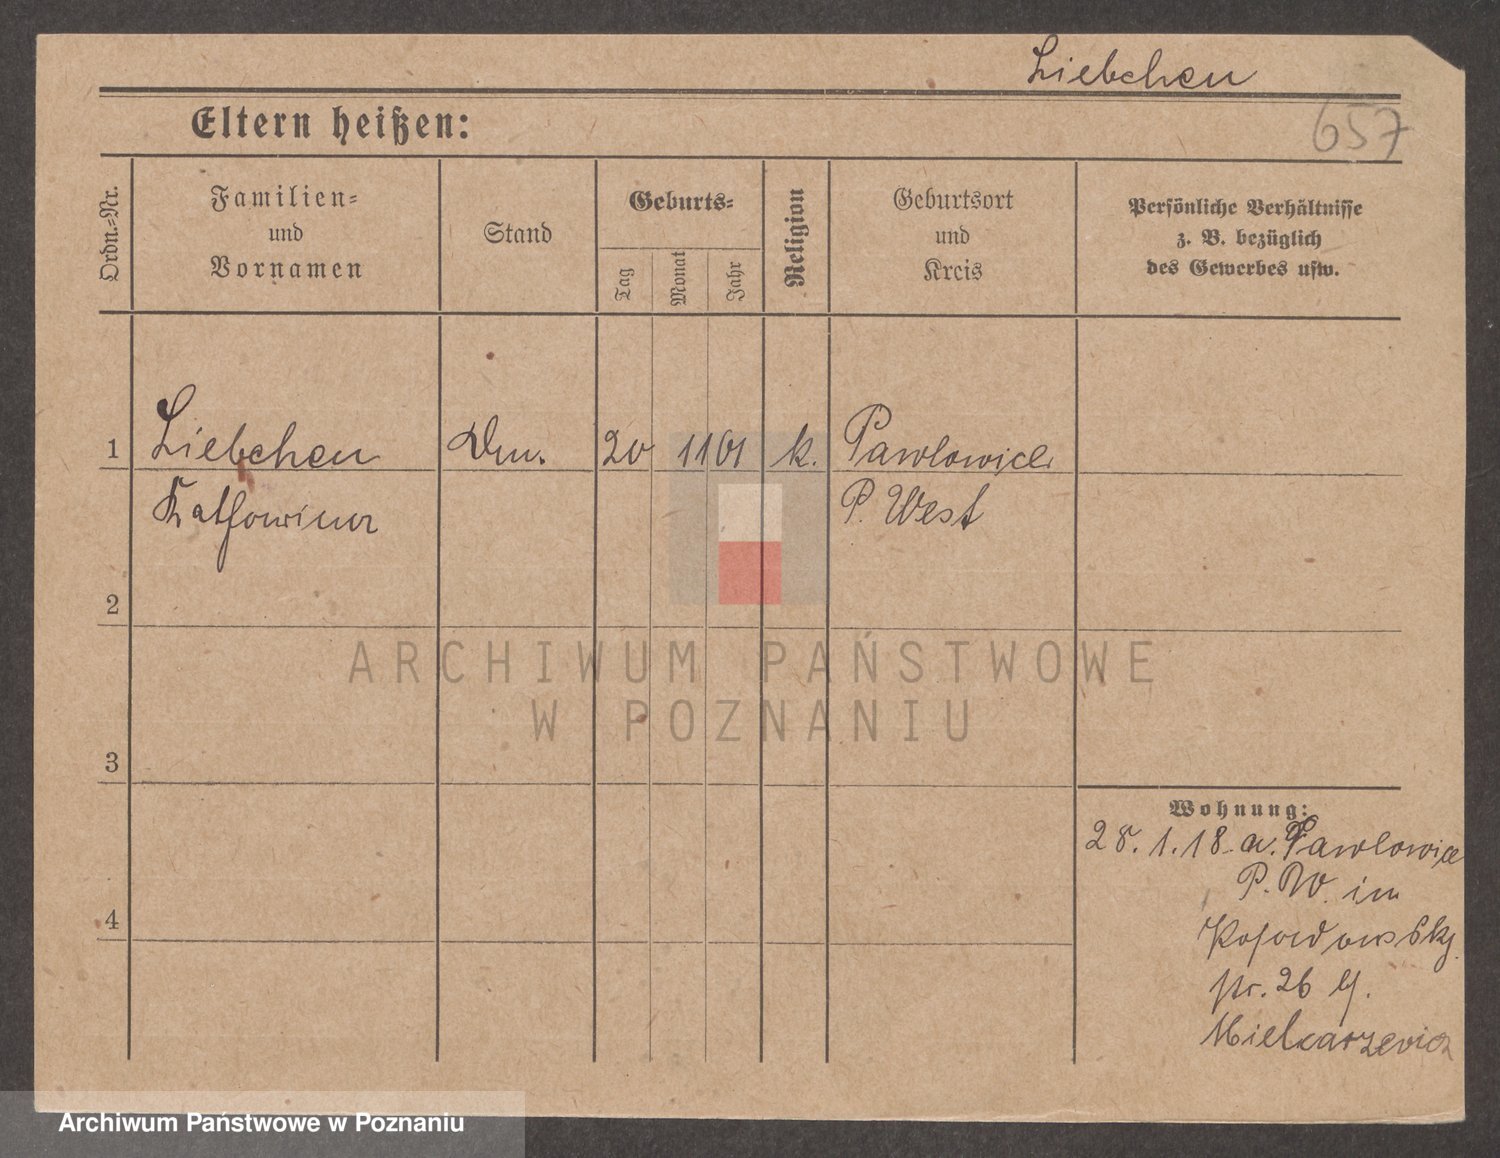 Liebchen
657
Eltern heißen:
Ordn.-Nr.
Familien-
und
Vornamen
Stand
Geburts-
Tag
Monat
Jahr
Religion
Geburtsort
und
Kreis
Persönliche Verhältnisse
z. B. bezüglich
des Gewerbes usw.
1 Liebchen 20 11 01 k. Pawlowice
P. West
2
3
4
Wohnung:
28. 1. 18 a. Pawlowice
P. W. in
str. 26 b/.
Mielcarzewicz
ARCHIWUM PAŃSTWOWE
W POZNANIU
Archiwum Państwowe w Poznaniu